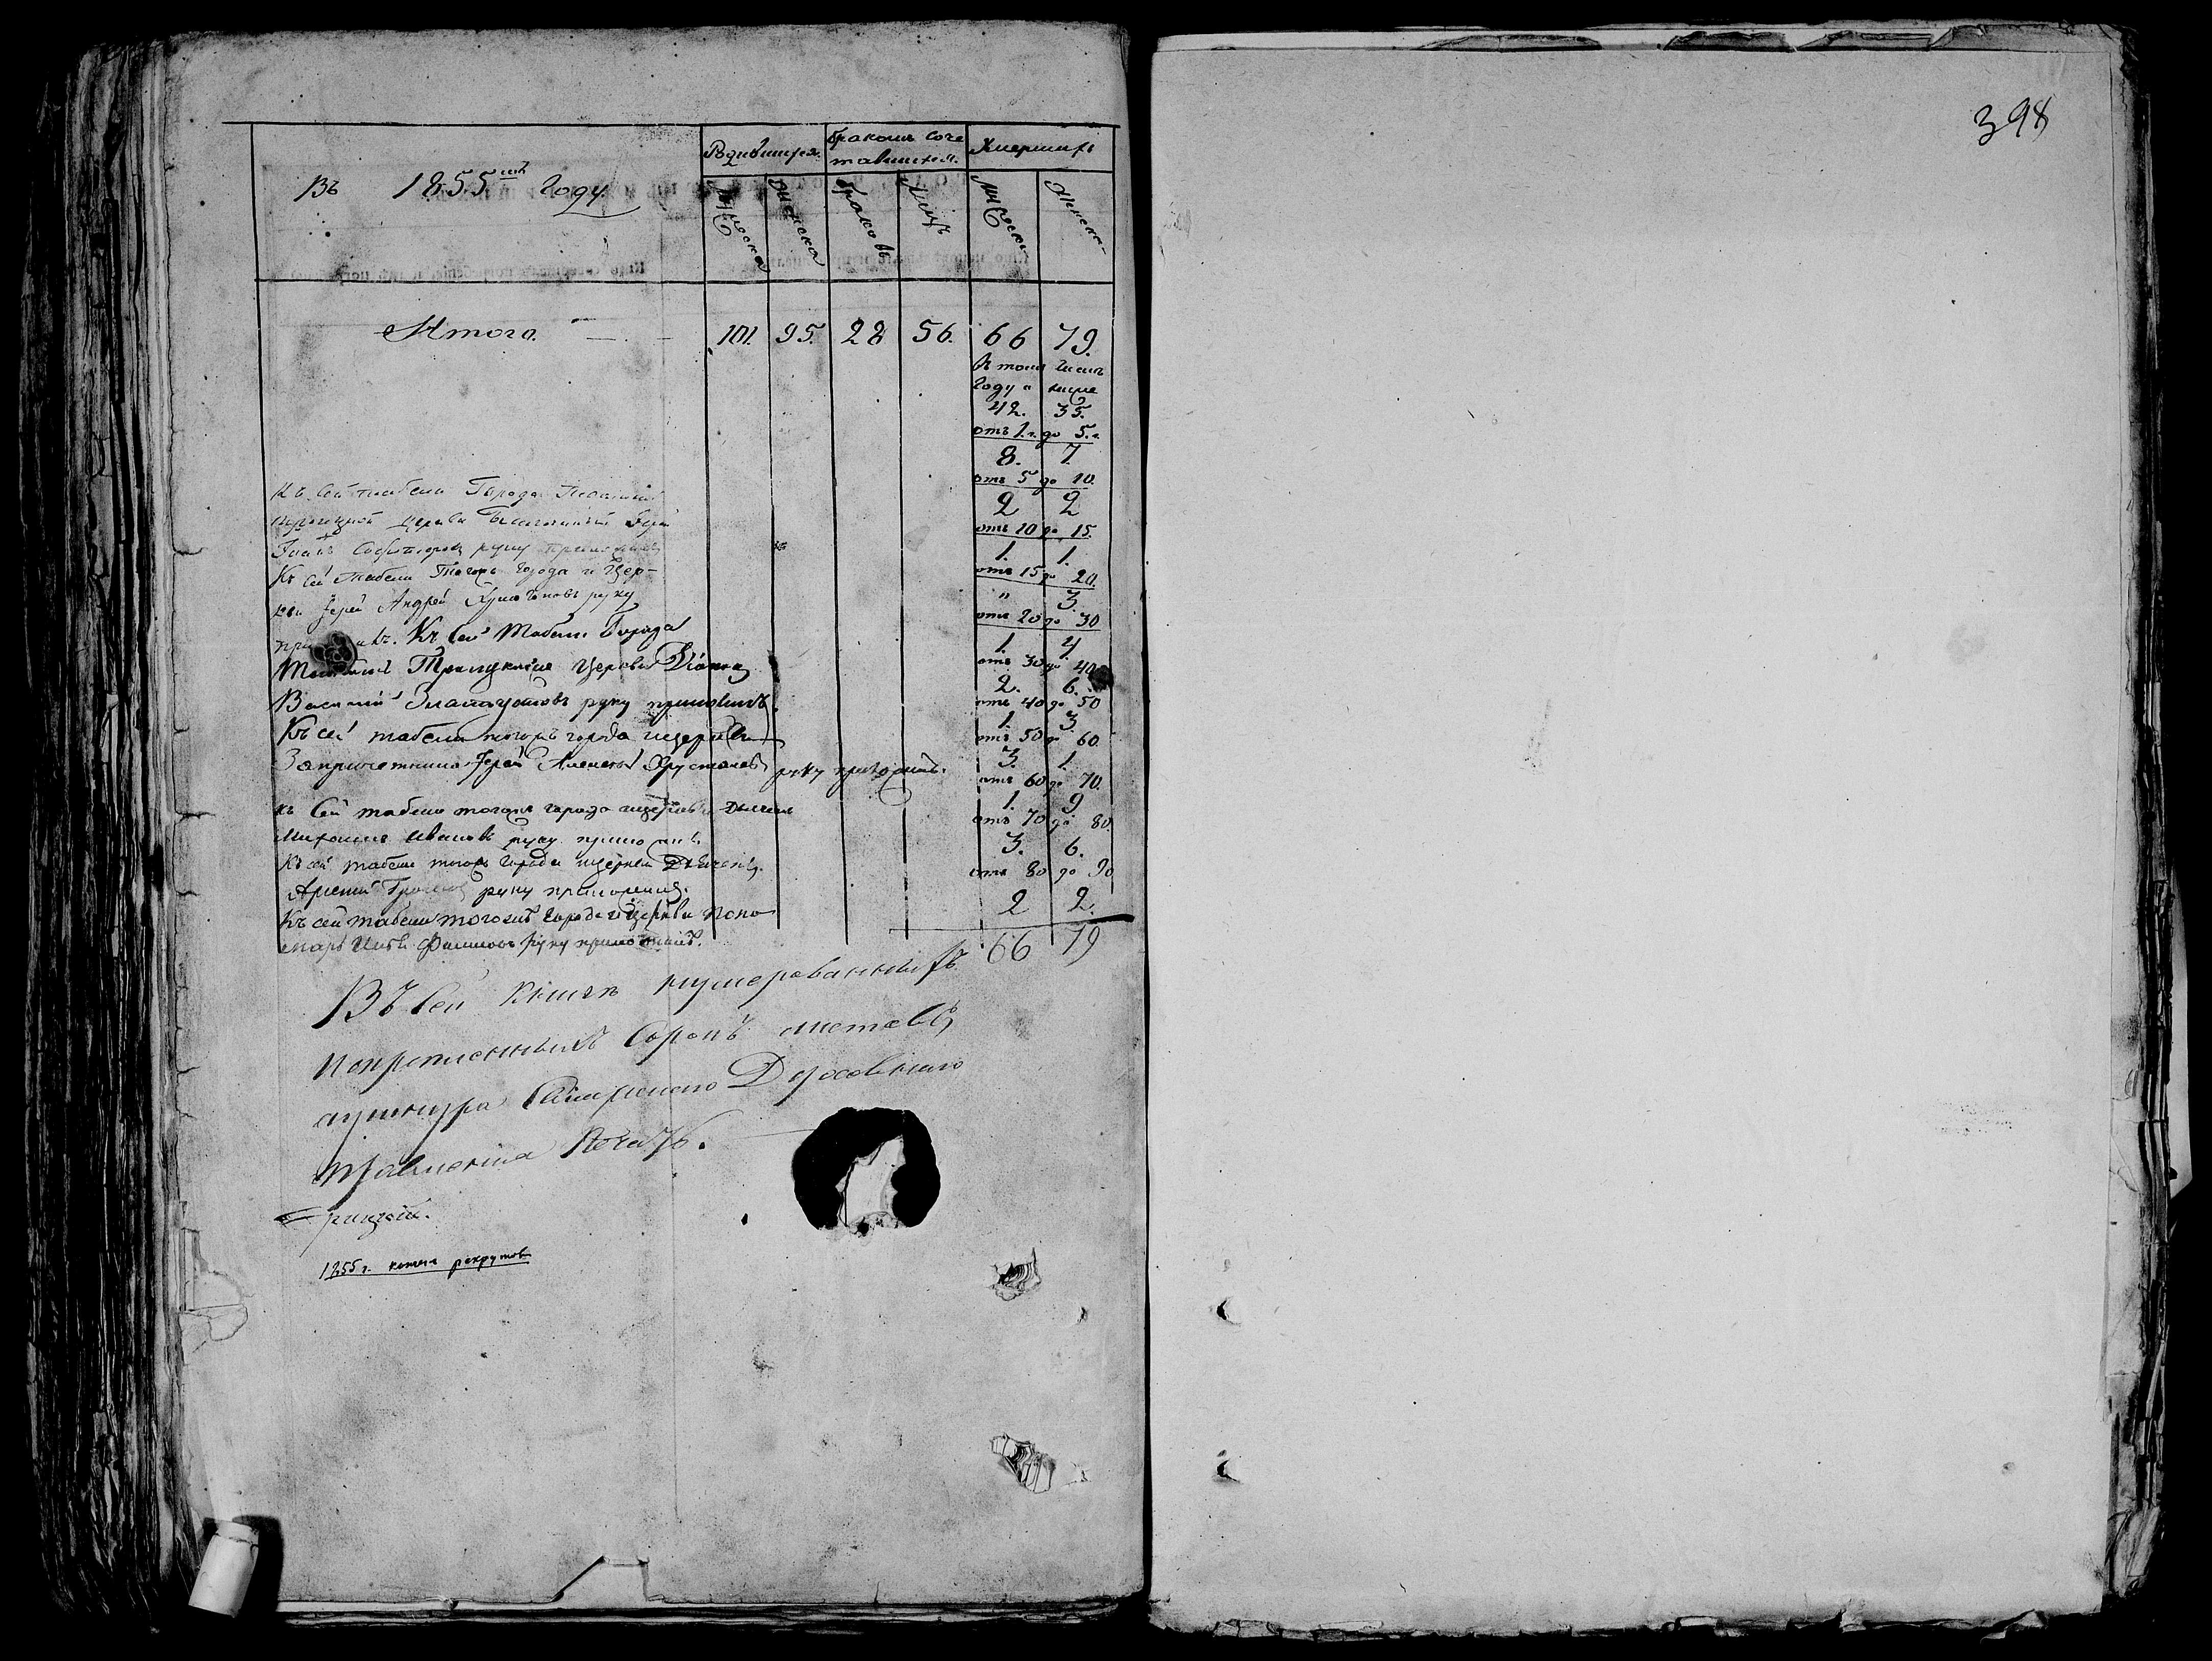 398
Въ 1855мъ Году
Родившихся. Бракомъ соче Умершихъ
тавшихся.
Мужеска Женска Браковъ Лицъ Мужеска Женска
Итого. 101. 95. 28 56. 66 79.
Въ томъ числѣ
Году и ниже
42. 35.
отъ 1.г. до 5.г.
8. 7.
отъ 5 до 10.
2 2
отъ 10 до 15.
1. 1.
отъ 15 до 20.
" 3.
отъ 20 до 30
1. 4.
отъ 30 до 40
2. 6.
отъ 40 до 50
1. 3.
отъ 50 до 60.
3. 1.
отъ 60 до 70.
1. 9
отъ 70 до 80.
3. 6.
отъ 80 до 90
2 2.
66 79
Къ сей табели Города
церкви
руку приложилъ
Къ сей табели Тогожъ города и Цер-
кви Іерей Андрей руку
Къ сей Табели Города
Троицкія Церкви Діаконъ
Василій Златоустовъ руку приложилъ.
Къ сей табели тогожъ города и церкви
За причетника Іерей Алексей руку приложилъ.
къ сей табели тогожъ города и церкви Дьячекъ
Михаилъ Ивановъ руку приложилъ.
Къ сей табели тогожъ города и церкви Дьячекъ
руку приложилъ.
Къ сей табели тогожъ города и Церкви Поно
марь руку приложилъ.
Въ сей книгѣ нумерованныхъ
и скрѣпленныхъ сорокъ листовъ,
у шнура Симбирскаго Духовнаго
Правленія Печать.
1855 г. книга